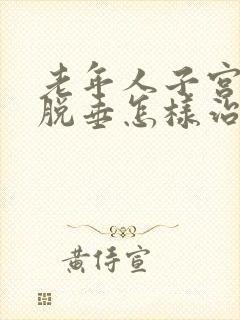 老年人子宫
脱垂怎样治
黄侍宣